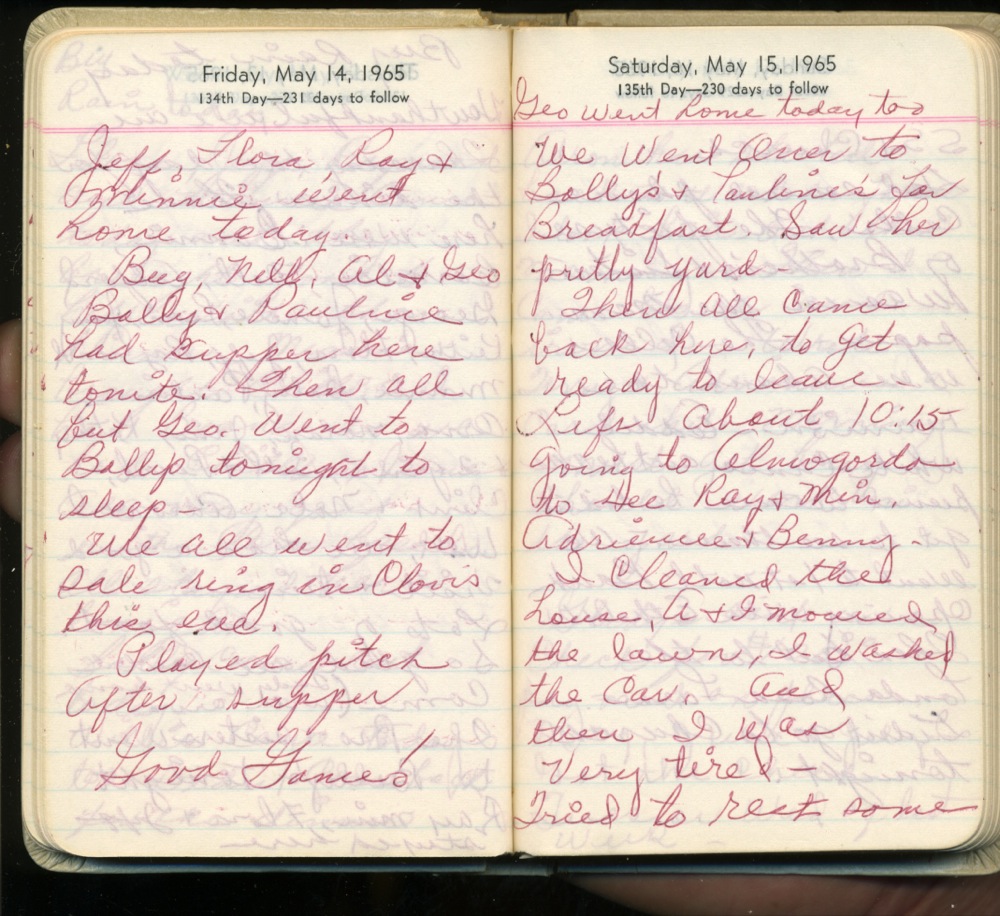 Friday, May 14, 1965
134th Day—231 days to follow
Jeff, Flora Ray &
Minnie went
home today.
Bug, Nell, Al & Geo
Bolly & Pauline
had supper here
tonite. Then all
but Geo. Went to
Bollys tonight to
sleep—
We all went to
sale ring in Clovis
this eve.
Played pitch
after supper
Good Games!
Saturday, May 15, 1965
135th Day—230 days to follow
Geo went home today too
We Went Over to
Bolly's & Pauline's for
Breadfast. Saw her
pretty yard—
Then all came
back here, to get
ready to leave—
Left about 10:15
going to Almogordo
to see Ray & Min,
Adrience & Benny—
I Cleaned the
house, A & I mowed
the lawn, I washed
the Car. And
then I was
Very tired—
Tried to rest some